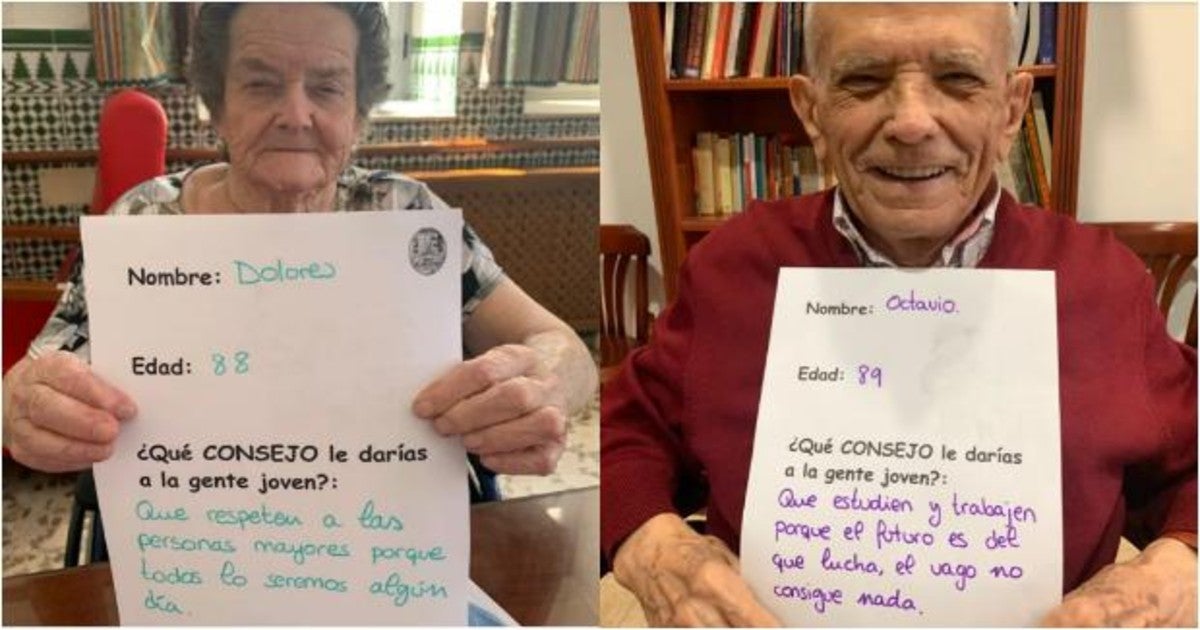 Nombre: Dolores
Edad: 88
¿Qué CONSEJO le darías
a la gente joven?:
Que respeten a las
personas mayores porque
todas lo seremos algún
día.
Nombre: Octavio.
Edad: 89
¿Qué CONSEJO le darías
a la gente joven?:
Que estudien y trabajen
porque el futuro es del
que lucha, el vago no
consigue nada.